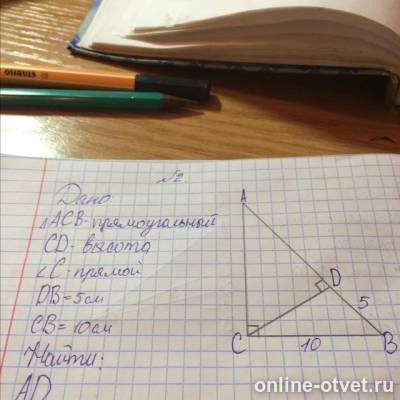 STABILO
№2
Дано:
△ACB - прямоугольный
CD - высота
∠C - прямой
DB = 5см
CB = 10см
Найти:
AD
A
D
5
C
10
B
online-otvet.ru